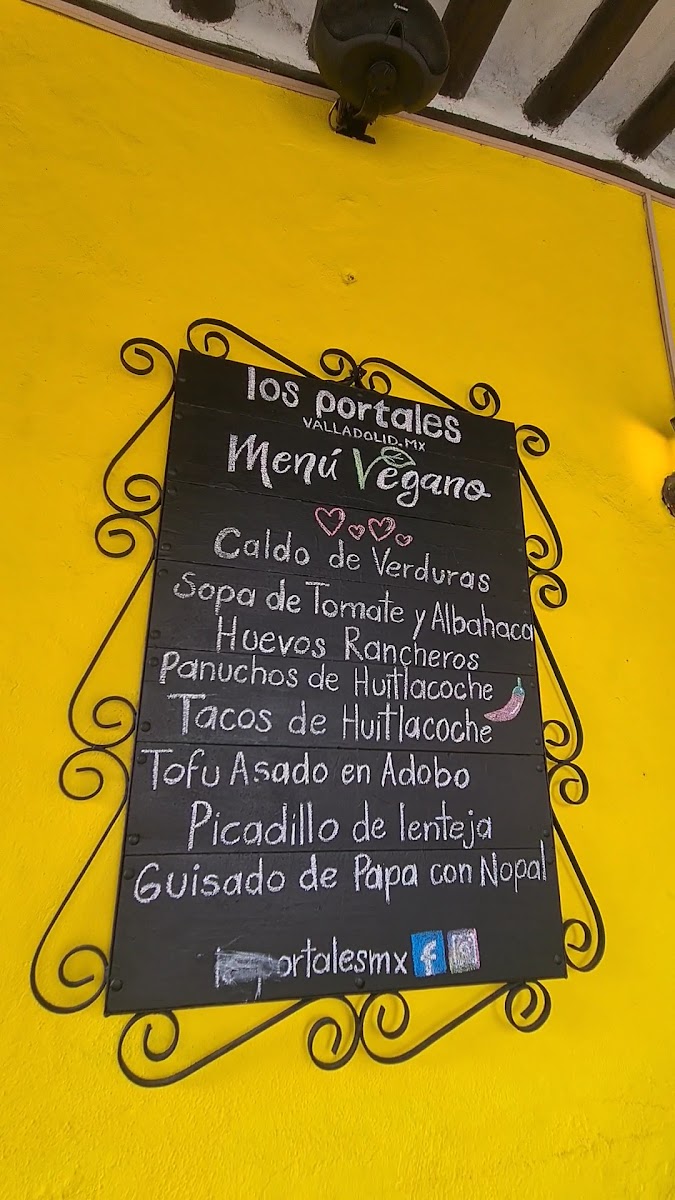 los portales
VALLADOLID.MX
Menú Vegano
Caldo de Verduras
Sopa de Tomate y Albahaca
Huevos Rancheros
Panuchos de Huitlacoche
Tacos de Huitlacoche
Tofu Asado en Adobo
Picadillo de lenteja
Guisado de Papa con Nopal
portalesmx f